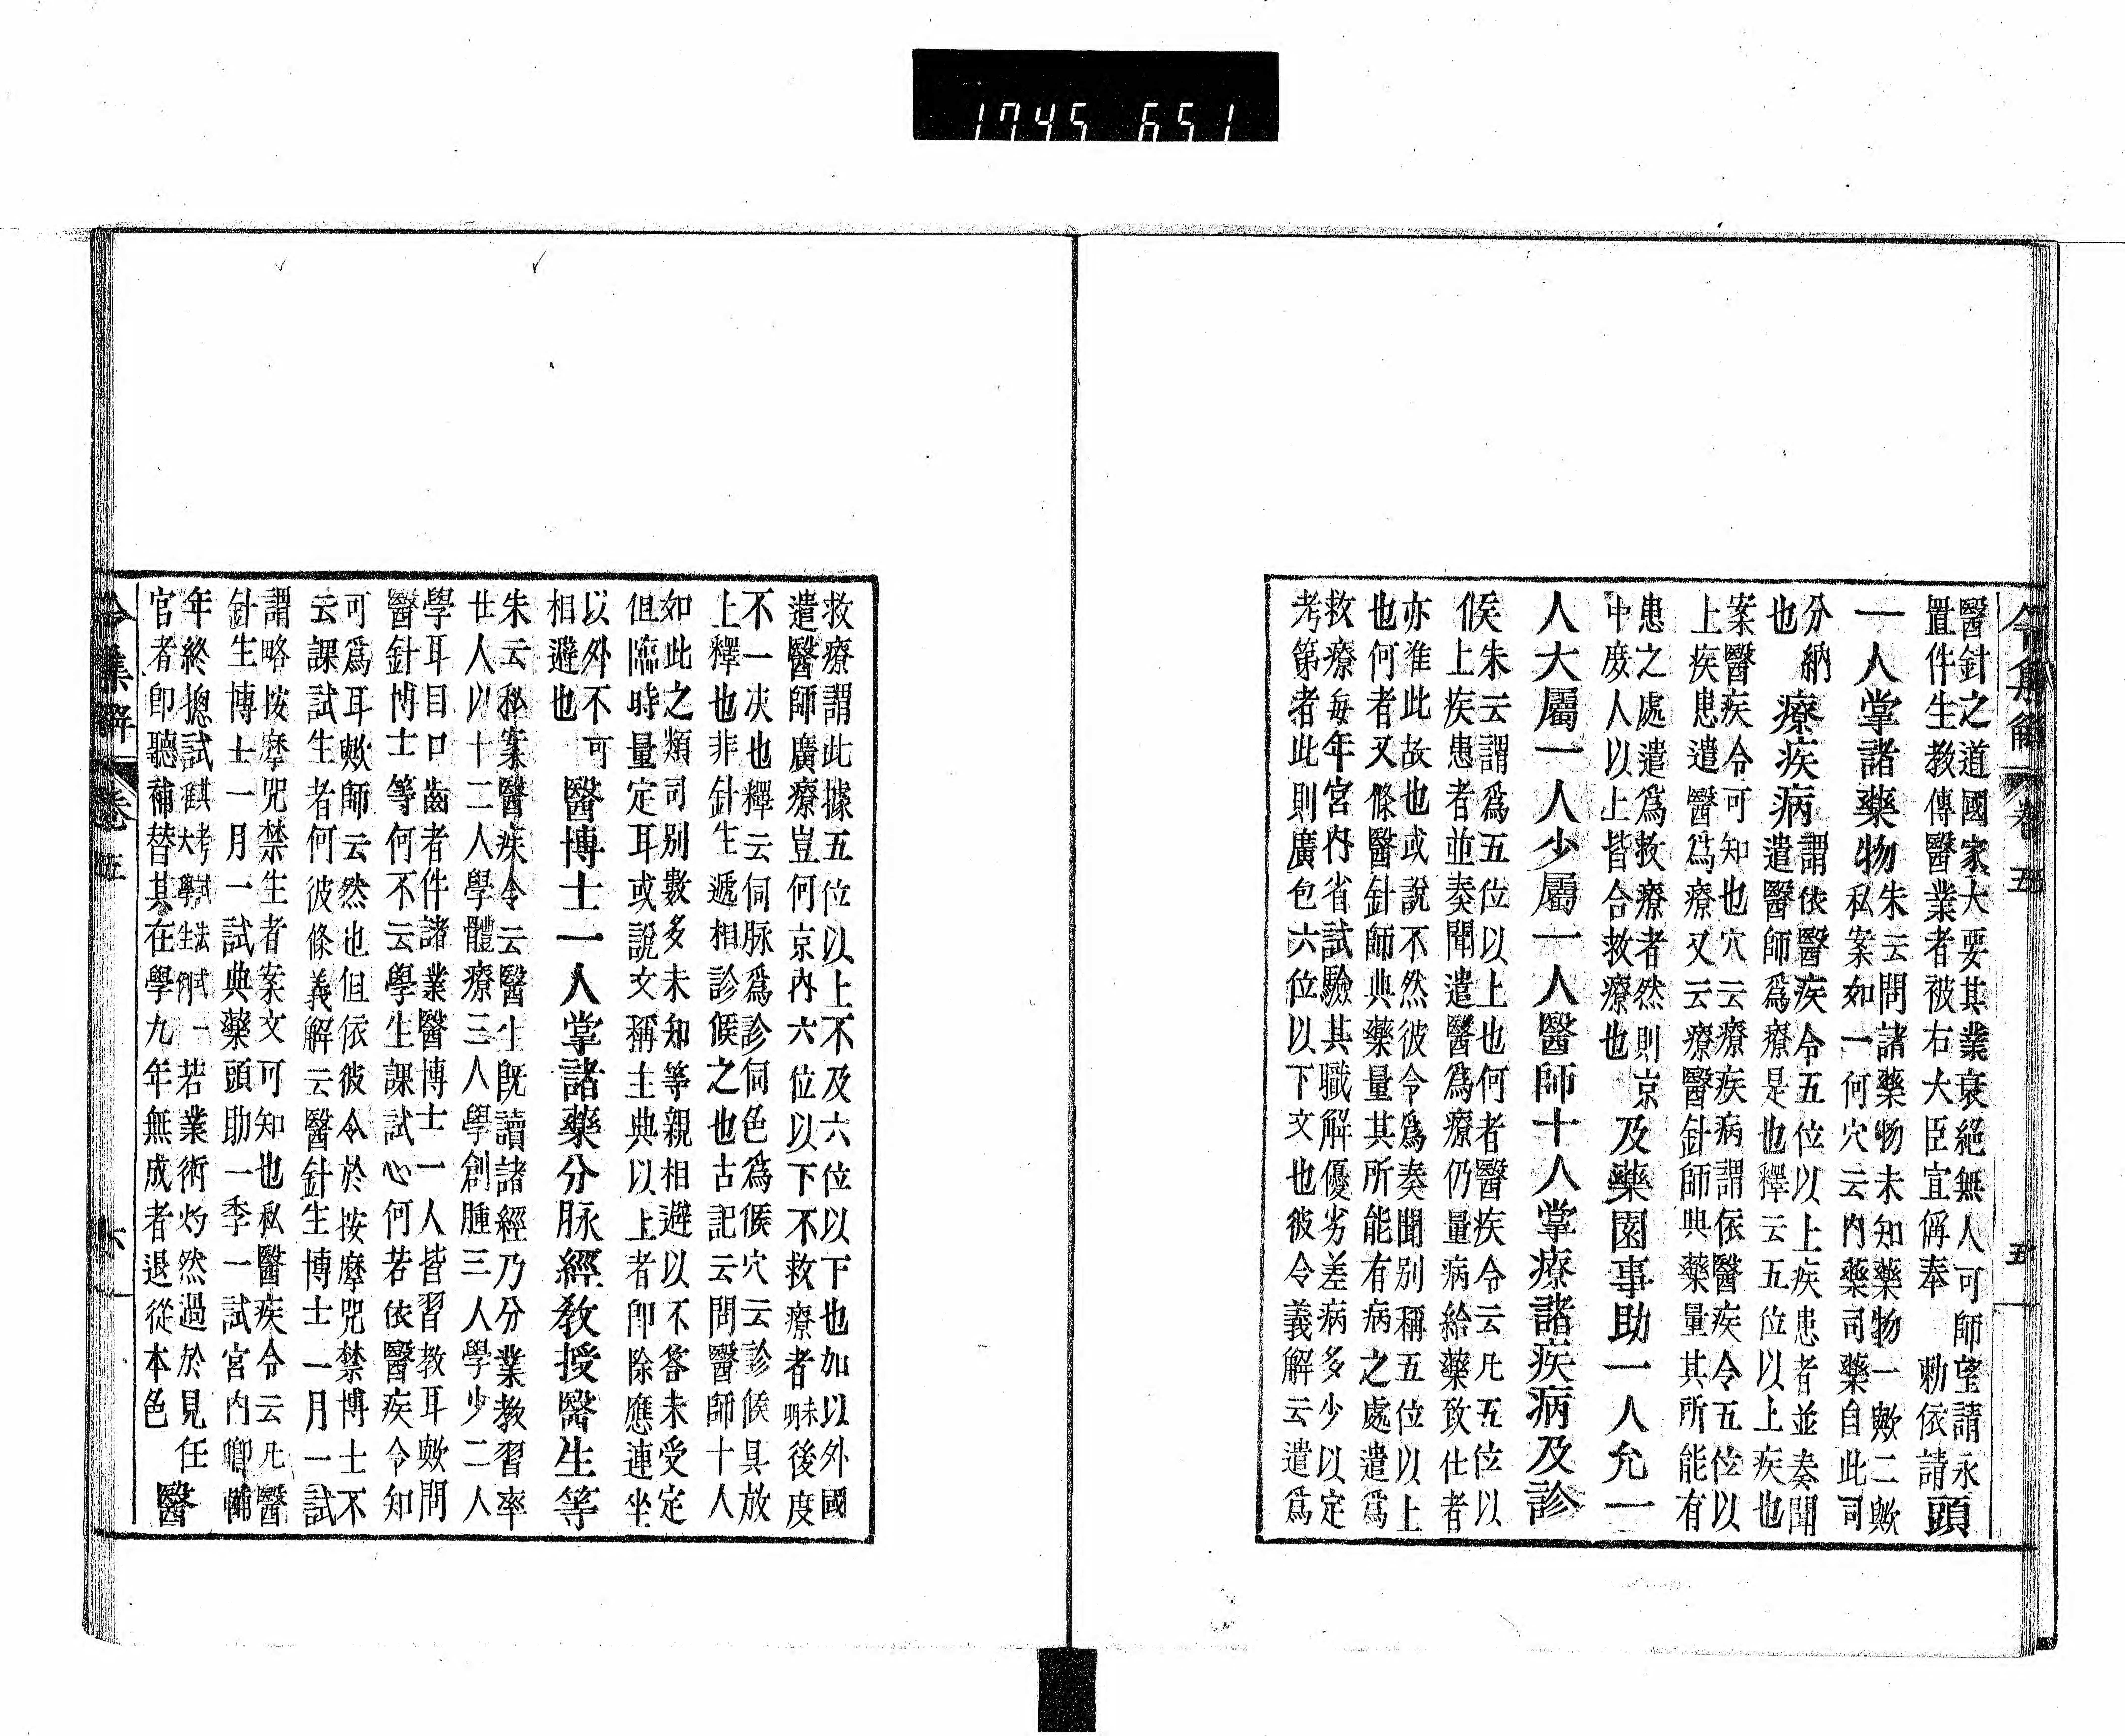 1745 651
令集解 卷五 五
醫針之道國家大要其業衰絕無人可師望請永
置件生教傳醫業者被右大臣宣偁奉 勅依請 頭
一人掌諸藥物 朱云問諸藥物未知藥物一歟二歟
私案如一何穴云內藥司藥自此司
分納
也 療疾病 謂依醫疾令五位以上疾患者並奏聞
遣醫師爲療是也釋云五位以上疾也
案醫疾令可知也穴云療疾病謂依醫疾令五位以
上疾患遣醫爲療又云療醫針師典藥量其所能有
患之處遣爲救療者然則京
中庶人以上皆合救療也 及藥園事助一人允一
人大屬一人少屬一人醫師十人掌療諸疾病及診
候 朱云謂爲五位以上也何者醫疾令云凡五位以
上疾患者並奏聞遣醫爲療仍量病給藥致仕者
亦准此故也或說不然彼令爲奏聞別稱五位以上
也何者又條醫針師典藥量其所能有病之處遣爲
救療每年宮內省試驗其職解優劣差病多少以定
考第者此則廣包六位以下文也彼令義解云遣爲
救療謂此據五位以上不及六位以下也加以外國
遣醫師廣療豈何京內六位以下不救療者未明後度
不一决也釋云伺脉爲診伺色爲候穴云診候具放
上釋也非針生遞相診候之也古記云問醫師十人
如此之類司別數多未知等親相避以不答未受定
但臨時量定耳或說文稱主典以上者卽除應連坐
以外不可
相避也 醫博士一人掌諸藥分脉經敎授醫生等
朱云私案醫疾令云醫生旣讀諸經乃分業教習率
廿人以十二人學體療三人學創腫三人學少二人
學耳目口齒者件諸業醫博士一人皆習教耳歟問
醫針博士等何不云學生課試心何若依醫疾令知
可爲耳歟師云然也但依彼令於按摩咒禁博士不
云課試生者何彼條義解云醫針生博士一月一試
謂略按摩咒禁生者案文可知也私醫疾令云凡醫
針生博士一月一試典藥頭助一季一試宮內卿輔
年終摠試其考試法式一准大學生例若業術灼然過於見任
官者卽聽補替其在學九年無成者退從本色 醫
令集解 卷五 六